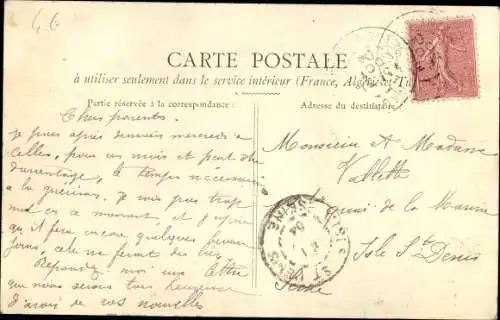 46
CARTE POSTALE
à utiliser seulement dans le service intérieur (France, Algérie et Tu
Partie réservée à la correspondance
Adresse du destinataire
Chers parents.
Je pars après demain mercredi à
Celles, pour un mois et peut être
davantage, le temps nécessaire
à la guérison. Je vais pas trop
mal en ce moment, et j'espère
qu'il fera encore quelques beaux
jours, cela me ferait du bien
Répondez moi une lettre
que nous serons tous heureux
d'avoir de vos nouvelles
Monsieur et Madame
Vallette
quai de la Marine
Isle St Denis
Seine
SEINE
04